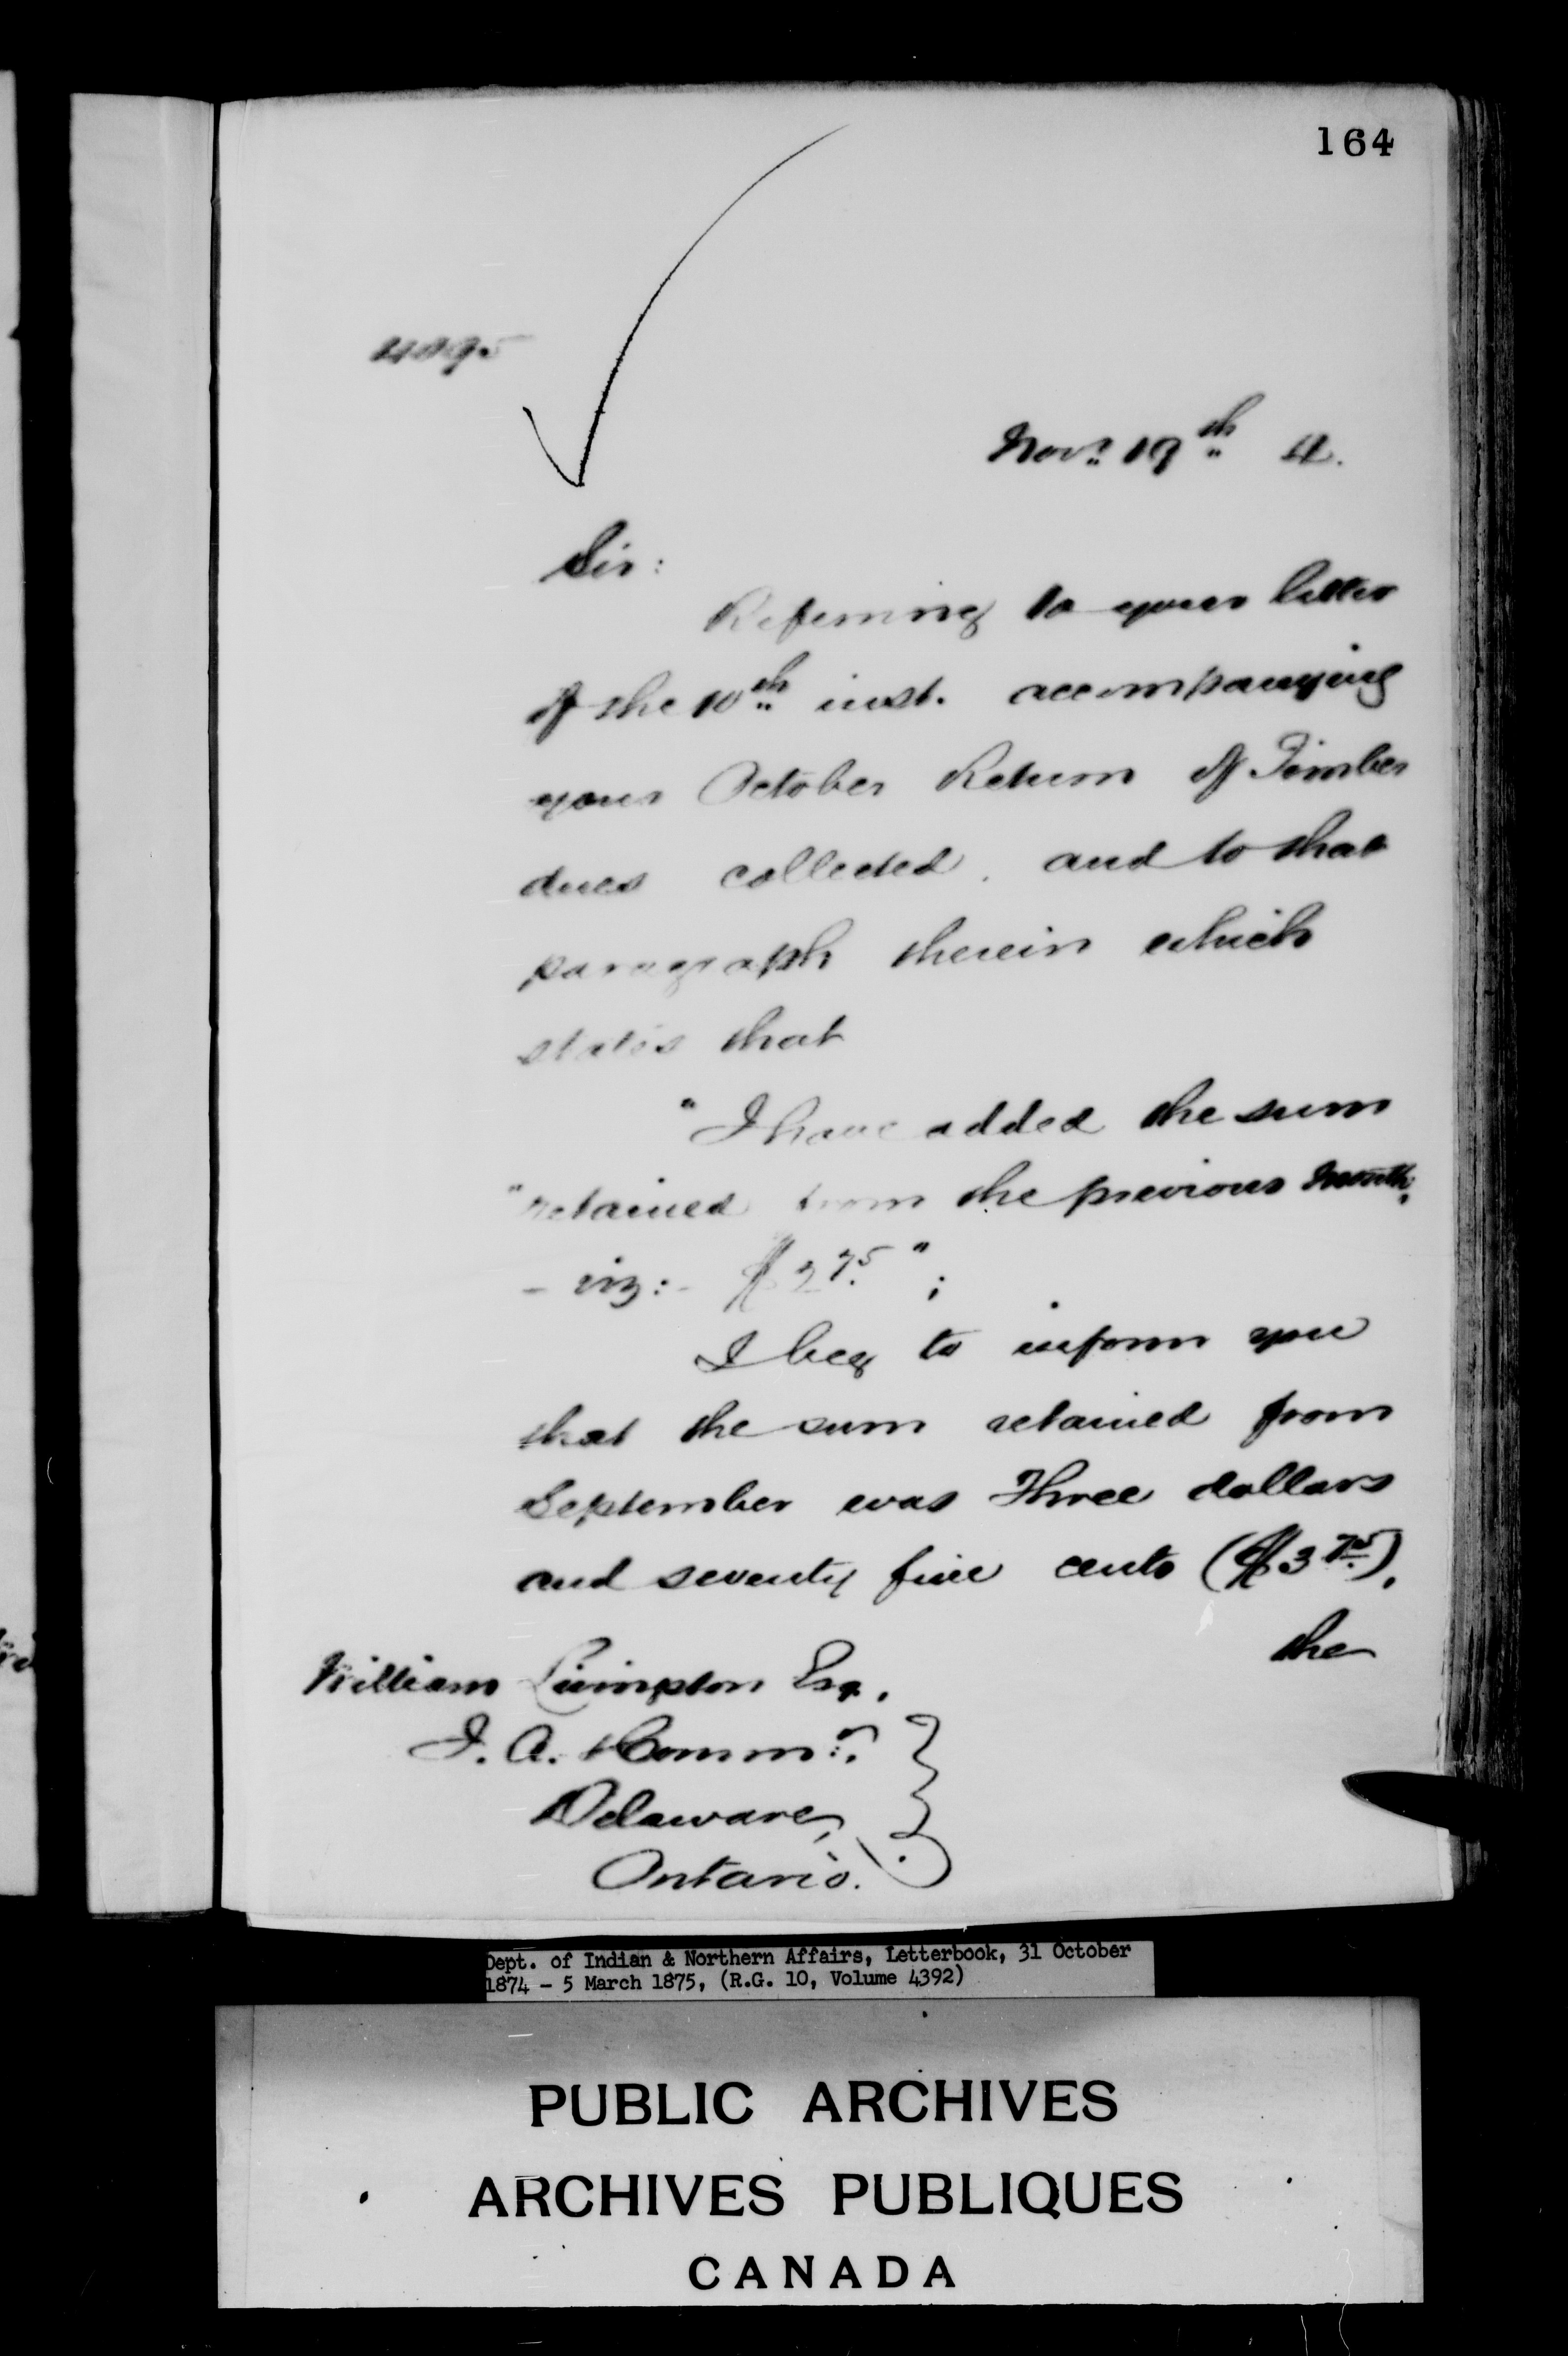 164
4095
Nov. 19th 4.
Sir:
Referring to your letter
of the 10th inst. accompanying
your October Return of Timber
dues collected, and to that
paragraph therein which
states that
"I have added the sum
"retained from the previous month,
- viz:- $2.75";
I beg to inform you
that the sum retained from
September was Three dollars
and seventy five cents ($3.75),
the
William Livingston Esq.
I. A. Commr.
Delaware,
Ontario.
Dept. of Indian & Northern Affairs, Letterbook, 31 October
1874 - 5 March 1875, (R.G. 10, Volume 4392)
PUBLIC ARCHIVES
ARCHIVES PUBLIQUES
CANADA